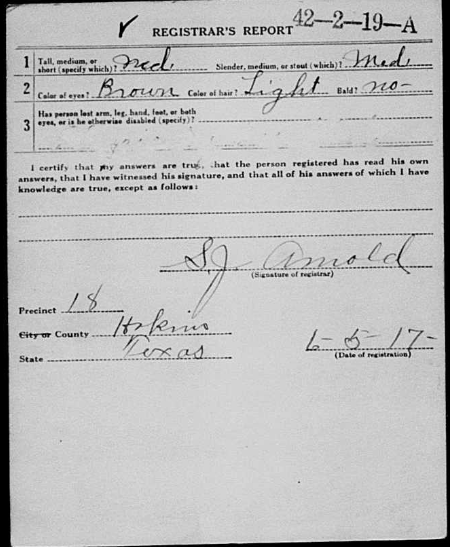 ✓ REGISTRAR'S REPORT 42-2-19-A
1 Tall, medium, or short (specify which)? Med Slender, medium, or stout (which)? Med
2 Color of eyes? Brown Color of hair? Light Bald? no-
3 Has person lost arm, leg, hand, foot, or both
eyes, or is he otherwise disabled (specify)?
I certify that my answers are true, that the person registered has read his own
answers, that I have witnessed his signature, and that all of his answers of which I have
knowledge are true, except as follows:
S.J. Arnold
(Signature of registrar)
Precinct 18
City or County Hopkins
State Texas
6-5-17-
(Date of registration)